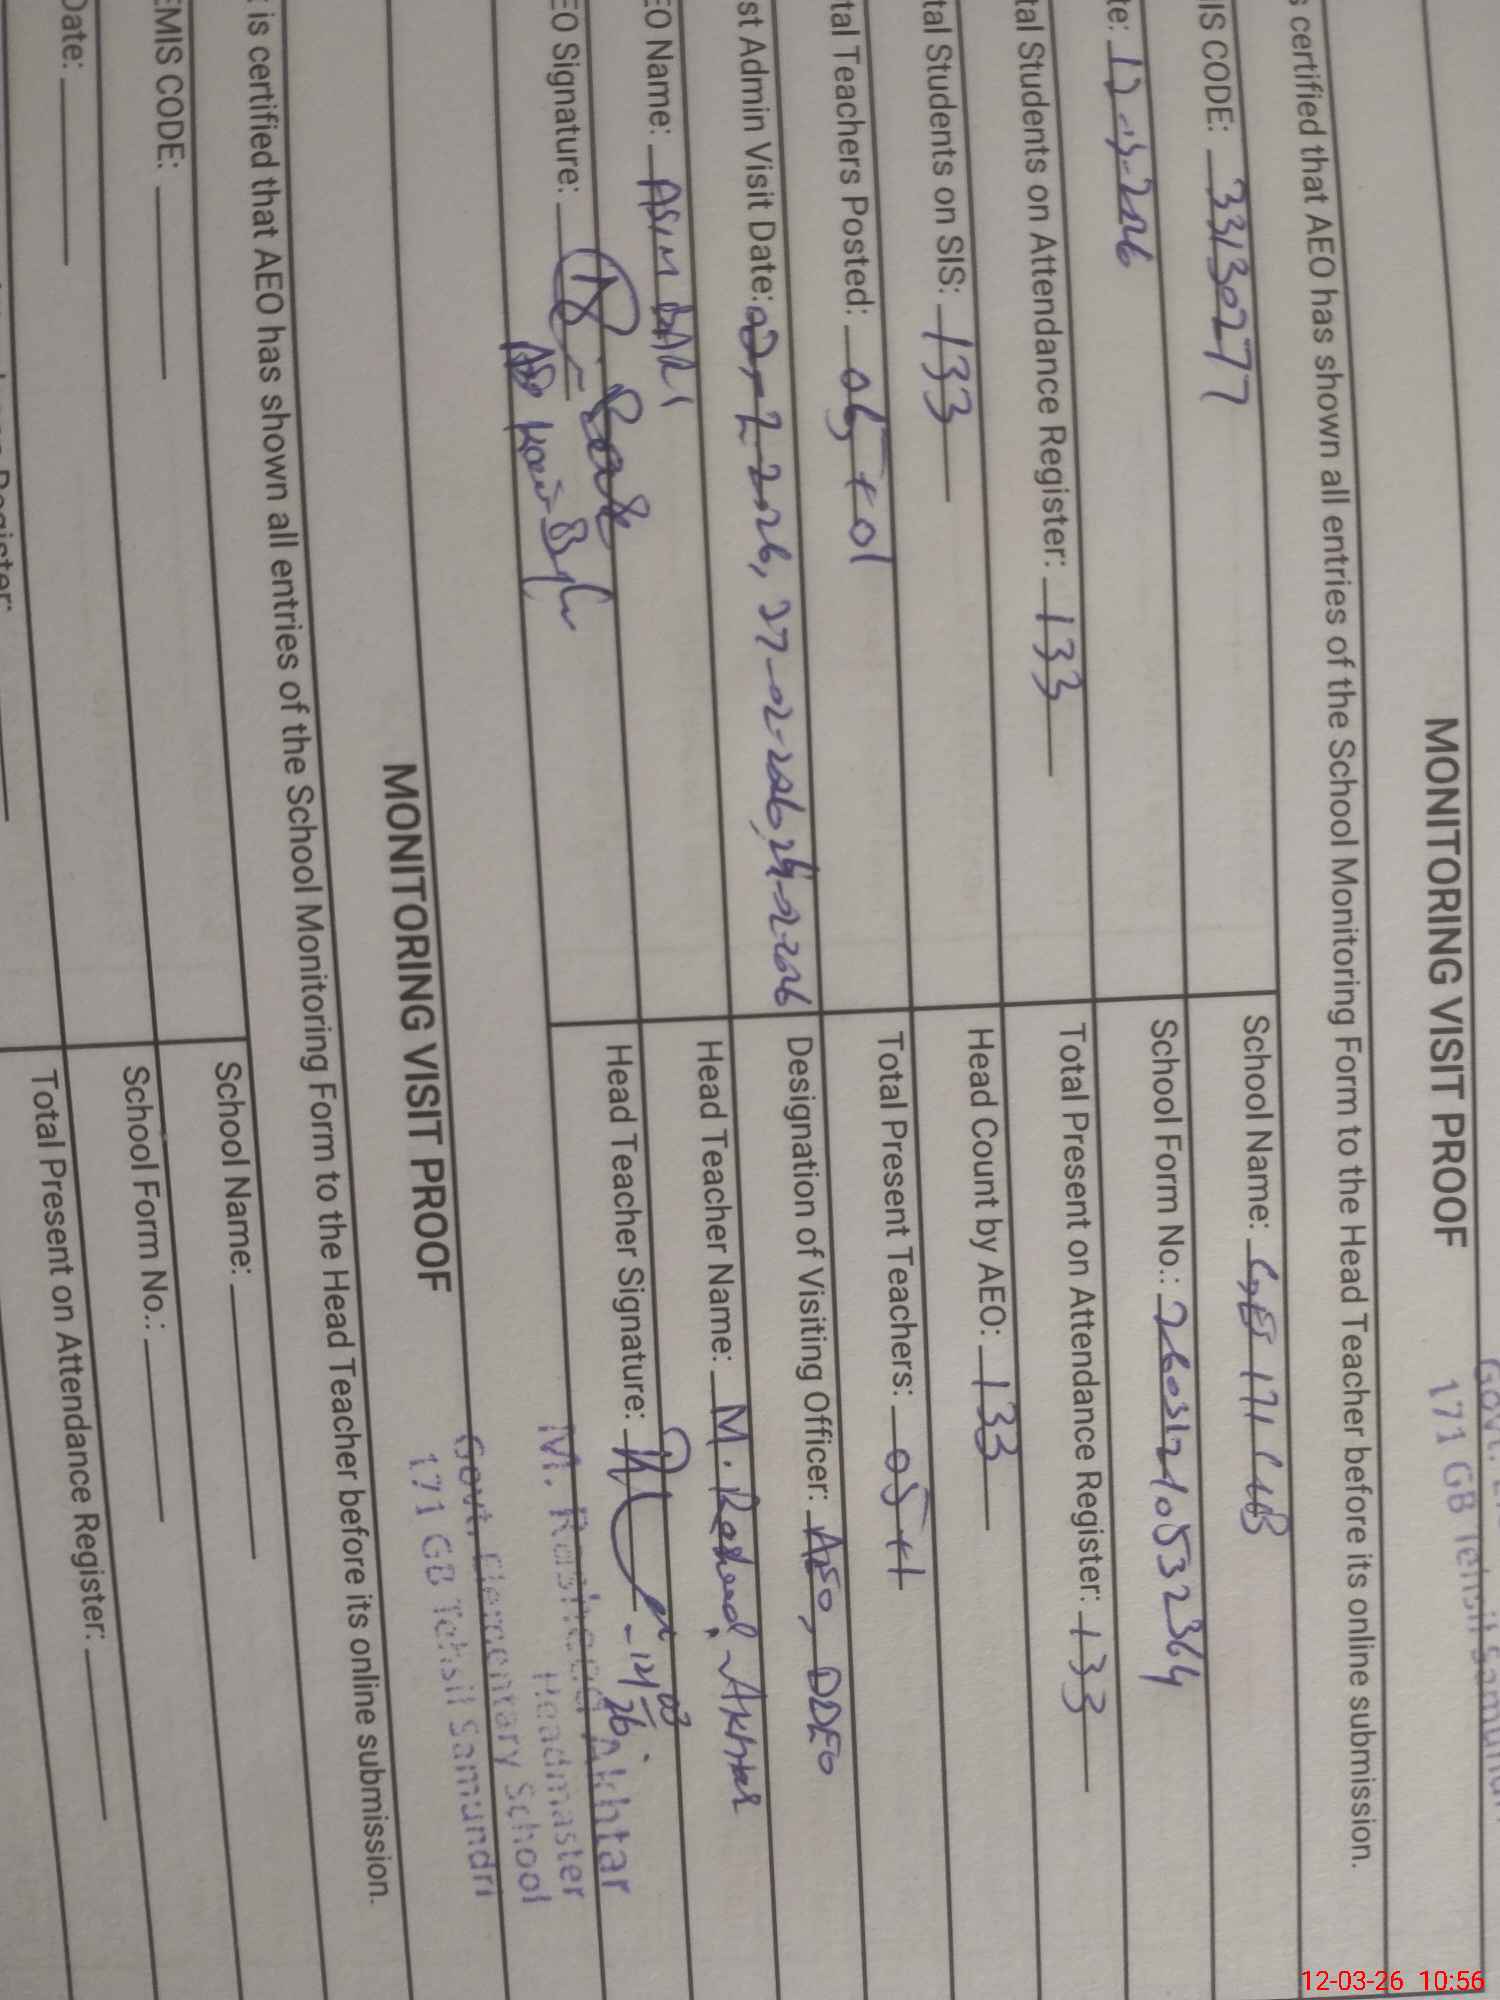 Govt.
171 GB Tehsil Samundri
MONITORING VISIT PROOF
s certified that AEO has shown all entries of the School Monitoring Form to the Head Teacher before its online submission.
IS CODE: 33130277
School Name: GES 171 GB
te: 12-3-2026
School Form No.:
tal Students on Attendance Register: 133
Total Present on Attendance Register: 133
tal Students on SIS: 133
Head Count by AEO: 133
tal Teachers Posted: 05+01
Total Present Teachers: 05+1
st Admin Visit Date: 2026, 27-02-2026, 24-2-2026
Designation of Visiting Officer: AEO, DDEO
EO Name: ASIM BARI
Head Teacher Name: M. Rasheed Akhtar
EO Signature:
Head Teacher Signature:
M. Rasheed Akhtar
Headmaster
Govt. Elementary School
171 GB Tehsil Samundri
MONITORING VISIT PROOF
t is certified that AEO has shown all entries of the School Monitoring Form to the Head Teacher before its online submission.
EMIS CODE:
School Name:
Date:
School Form No.:
Register:
Total Present on Attendance Register:
12-03-26 10:56